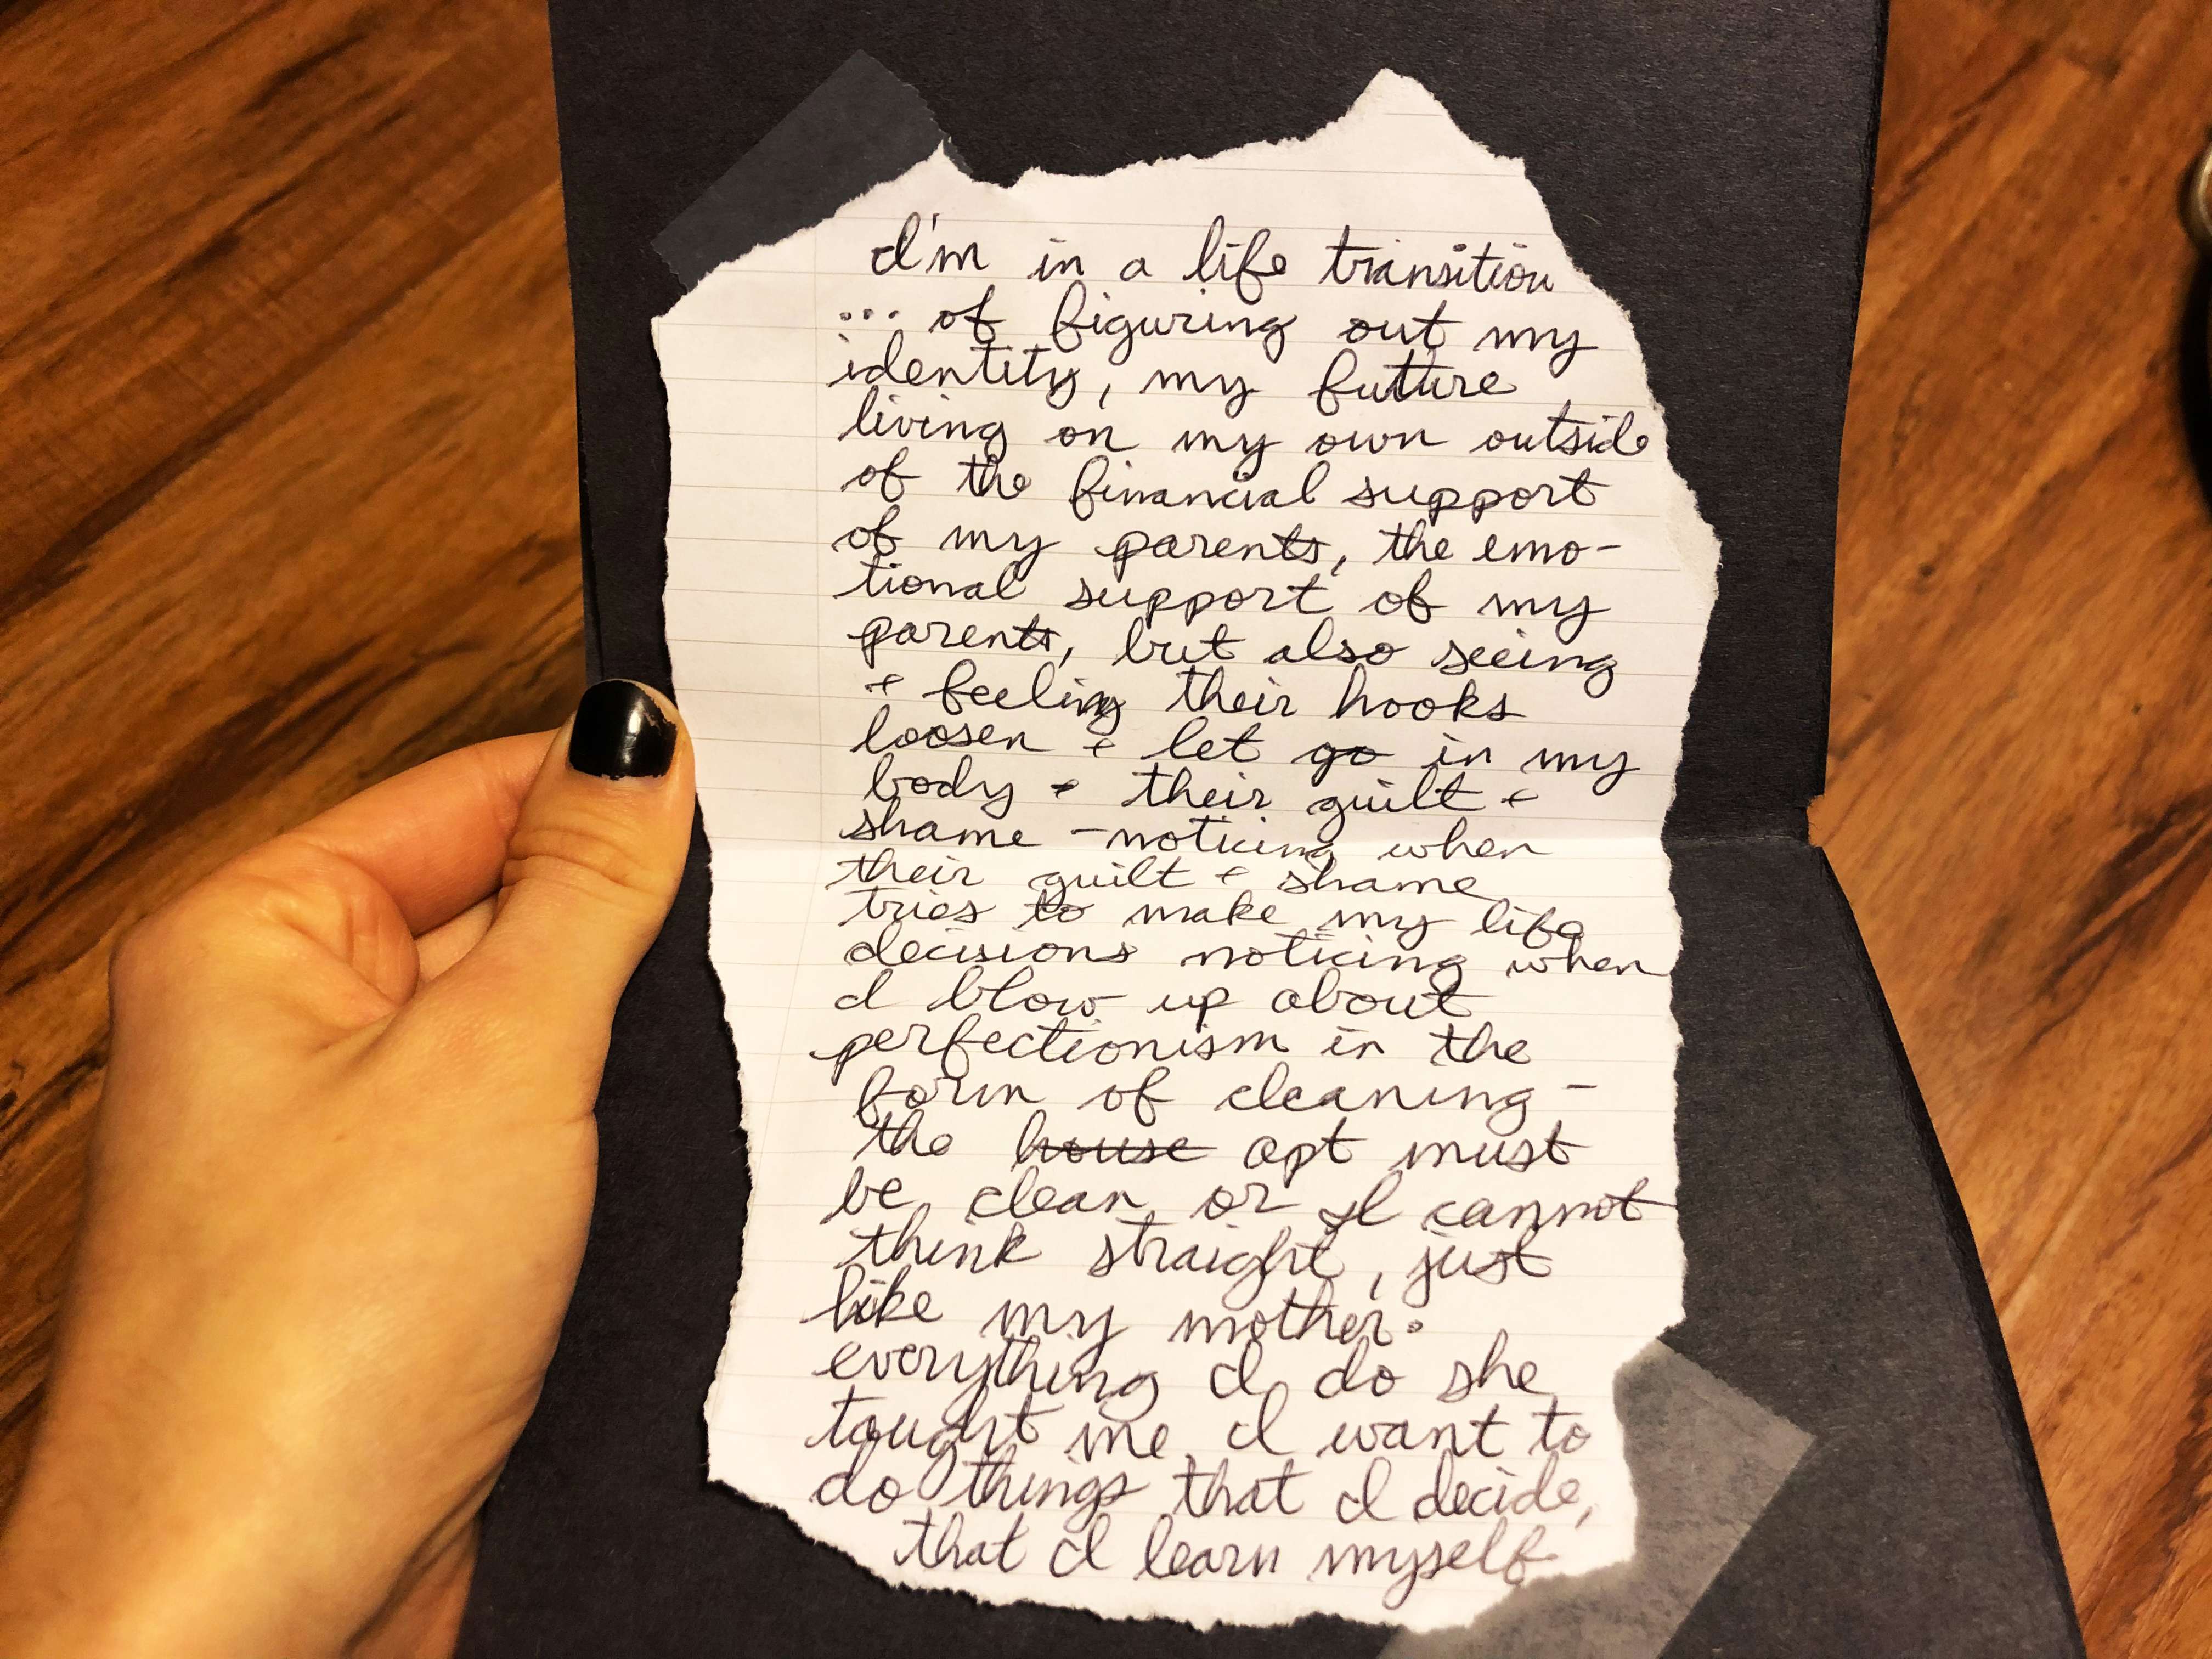 I'm in a life transition
... of figuring out my
identity, my future
living on my own outside
of the financial support
of my parents, the emo-
tional support of my
parents, but also seeing
+ feeling their hooks
loosen + let go in my
body + their guilt +
shame - noticing when
their guilt + shame
tries to make my life
decisions noticing when
I blow up about
perfectionism in the
form of cleaning -
the house apt must
be clean or I cannot
think straight, just
like my mother.
everything I do she
taught me. I want to
do things that I decide,
that I learn myself